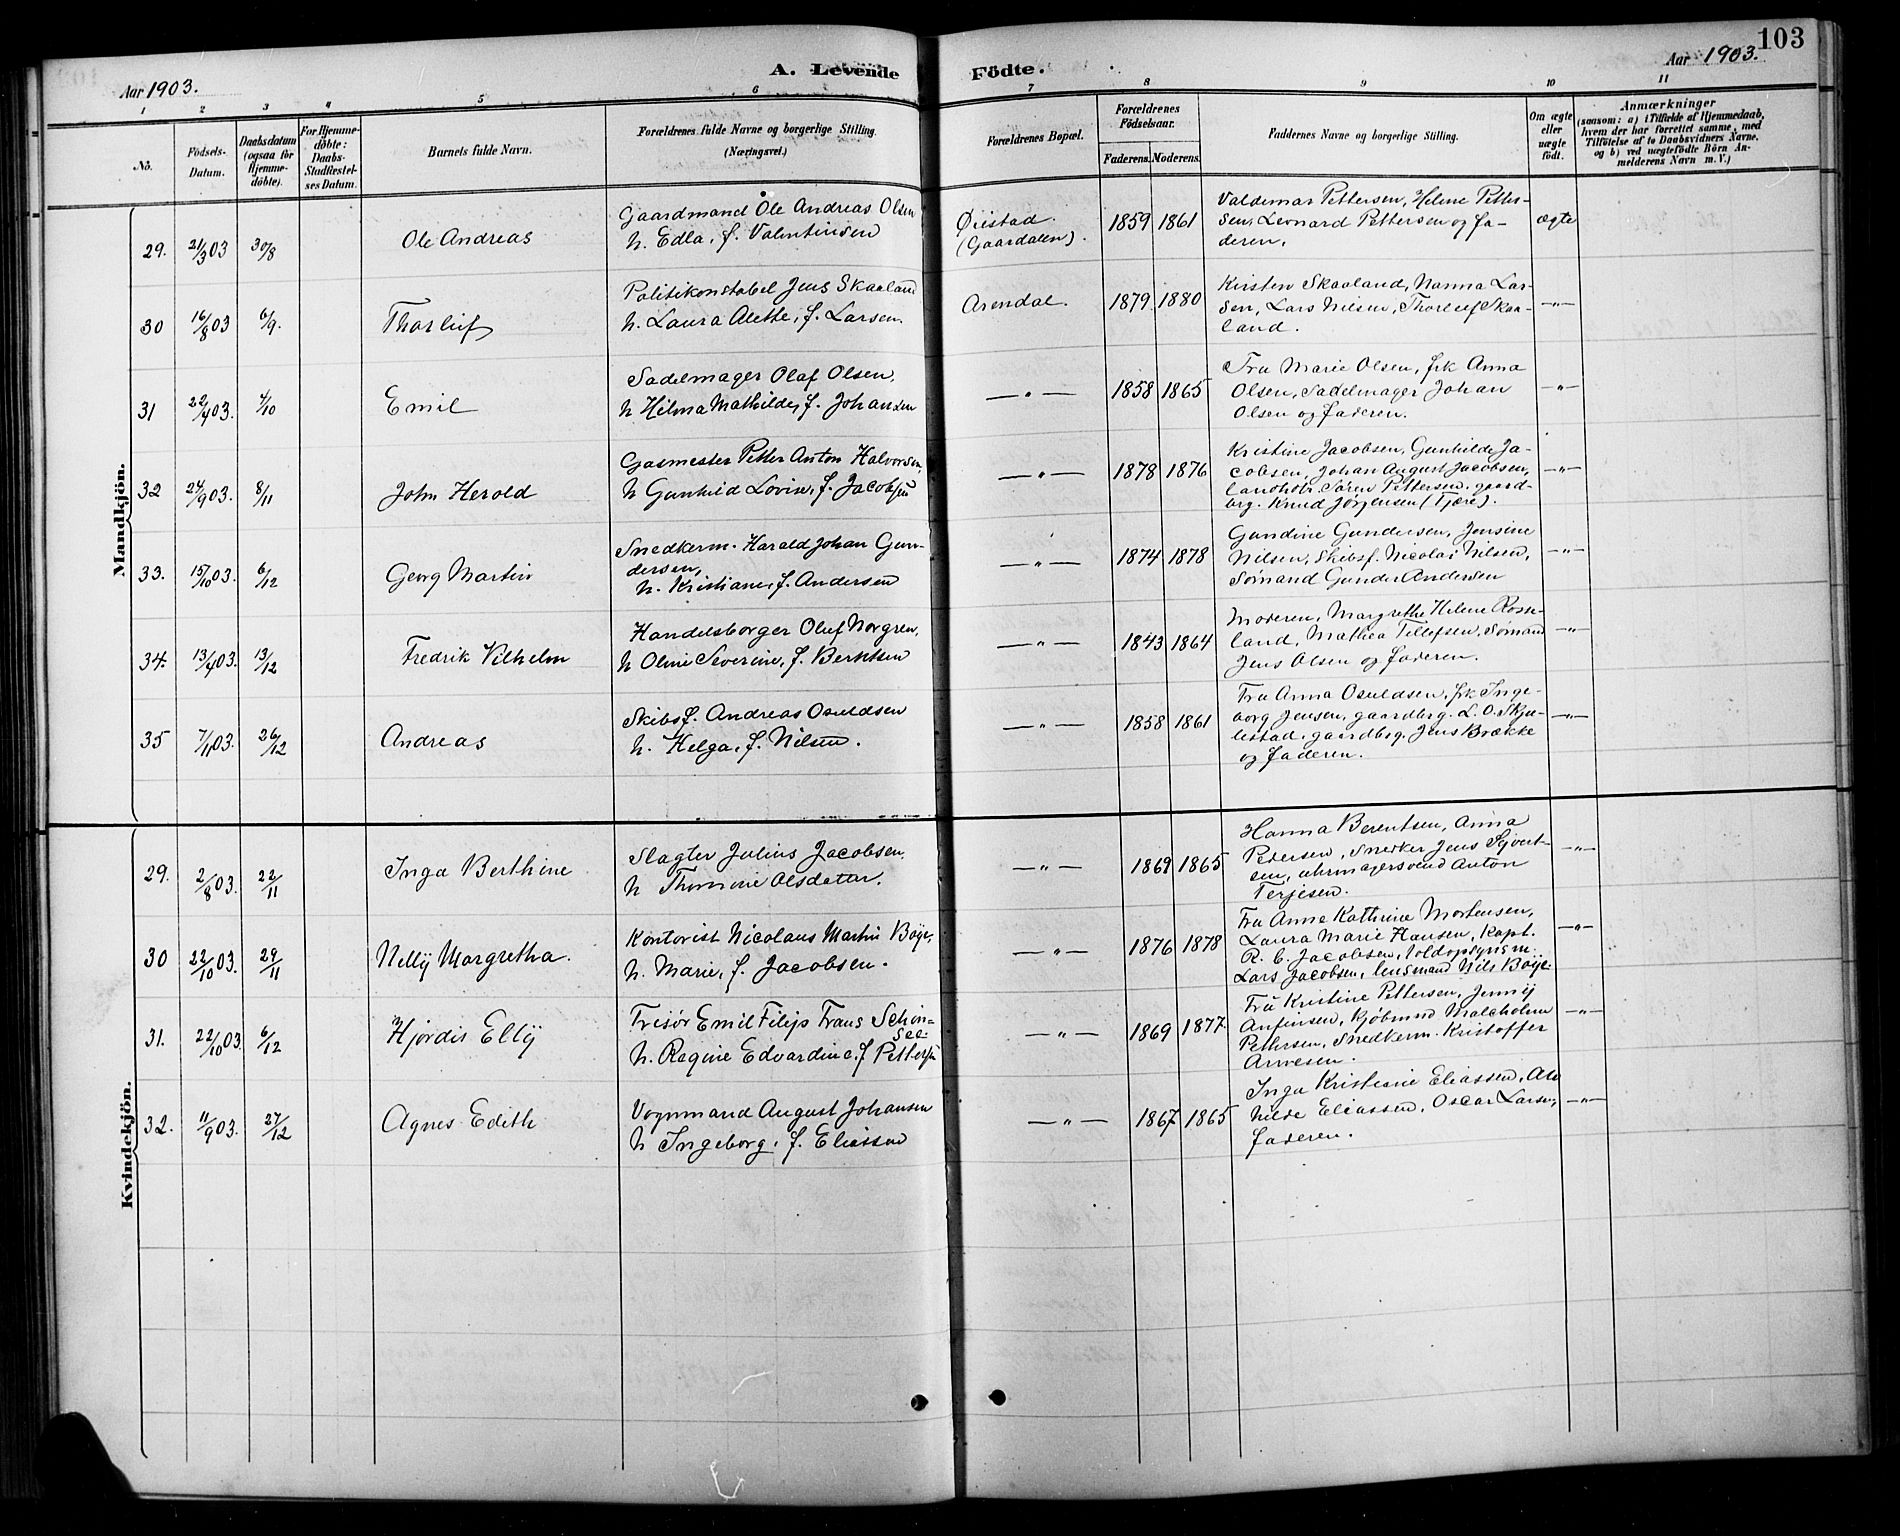 103
Aar 1903.
A. Levende
Födte.
Aar 1903.
1 2 3 4 5 6 7 8 9 10 11
No.
Födsels-
Datum.
Daabsdatum
(ogsaa for
Hjemme-
döbte).
For Hjemme-
döbte:
Daabs-
Stadfæstel-
ses Datum.
Barnets fulde Navn.
Forældrenes fulde Navne og borgerlige Stilling.
(Næringsvei.)
Forældrenes Bopæl.
Forældrenes
Födselsaar.
Faderens. Moderens.
Faddernes Navne og borgerlige Stilling.
Om ægte
eller
uægte
födt.
Anmærkninger
(saasom: a) i Tilfælde af Hjemmedaab,
hvem der har forrettet samme, med
Tilföielse af to Daabsvidners Navne,
og b) ved uægtefödte Börn An-
melderens Navn m. V.)
Mandkjön.
29. 21/3 03 30/8 Ole Andreas
Gaardmand Ole Andreas Olsen
h. Edla, f. Valentinsen
Øiestad.
(Gaardalen).
1859 1861
Valdemar Pettersen, Helene Petter-
sen, Leonard Pettersen og fa-
deren.
ægte
30 16/8 03 6/9. Thorleif
Politikonstabel Jens Skaaland
h. Laura Alette, f. Larsen.
Arendal. 1879. 1880
Kirsten Skaaland, Nanna Lar-
sen, Lars Nilsen, Thorleif Skaa-
land.
—"—
31 22/4 03. 4/10 Emil
Sadelmager Olaf Olsen,
h Hilma Mathilde, f. Johansen
—"— 1858 1865
Fru Marie Olsen, frk Anna
Olsen, Sadelmager Johan
Olsen og faderen.
—"—
32 24/9 03. 8/11 John Herold
Gasmester Petter Anton Halvorsen
h Gunhild Lovise, f. Jacobsen
—"— 1878 1876
Kristine Jacobsen, Gunhilde Ja-
cobsen, Johan August Jacobsen,
landhdl. Søren Pettersen, gaard-
brg. Knud Jørgensen (Tjære).
—"—
33. 15/10 03. 6/12 Georg Martin
Snedkerm. Harald Johan Gun-
dersen,
h. Kristiane, f. Andersen
—"— 1874 1878
Gundine Gundersen, Jensine
Nilsen, Skibsf. Nicolai Nilsen,
Sømand Gunder Andersen
—"—
34. 13/4 03. 13/12 Fredrik Vilhelm
Handelsborger Oluf Norgren,
h Oline Severine, f. Berntsen
—"— 1843 1864
Moderen, Margrethe Helene Rosse-
land, Mathea Tellefsen, Sømand
Jens Olsen og faderen.
—"—
35 7/11 03. 26/12 Andreas
Skibsf. Andreas Osuldsen
h. Helga, f. Nilsen.
—"— 1858 1861
Fru Anna Osuldsen, frk Inge-
borg Jensen, gaardbrg. L. O. Skju-
lestad, gaardbrg. Jens Brække
og faderen.
—"—
Kvindekjön.
29. 2/8 03. 22/11 Inga Berthine
Slagter Julius Jacobsen,
h Thomine Olsdatter.
—"— 1869 1865
Hanna Berentsen, Anna
Pedersen, Snedker Jens Sjvert-
sen, uhrmagersvend Anton
Terjesen.
—"—
30 22/10 03. 29/11 Nelly Margretha.
Kontorist Nicolaus Martin Bøye,
h. Marie, f. Jacobsen.
—"— 1876 1878
Fru Anne Kathrine Mortensen,
Laura Marie Hansen, Kapt.
R. C. Jacobsen, Toldopsynsm.
Lars Jacobsen, lensmand Nils Bøye.
—"—
31. 22/10 03. 6/12 Hjørdis Elly
Frisør Emil Filip Frans Schin-
See
h. Regine Edvardine, f Pettersen
—"— 1869 1877.
Fru Kristine Pettersen, Jenny
Anfinsen, kjøbmnd Malcholm
Pettersen, Snedkerm. Kristoffer
Arnesen.
—"—
32. 11/9 03. 27/12 Agnes Edith
Vognmand August Johansen
h Ingeborg, f. Eliassen
—"— 1867 1865
Inga Kristiane Eliassen, Al-
hilde Eliassen, Oscar Larsen,
faderen.
—"—